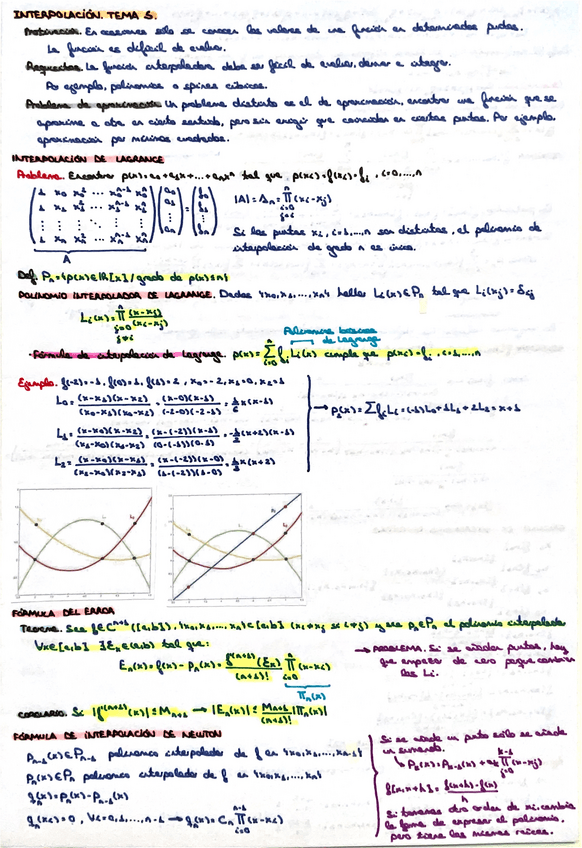 INTERPOLACIÓN. TEMA 5.
Motivación. En ocasiones sólo se conocen los valores de una función en determinados puntos.
La función es difícil de evaluar.
Requisitos. La función interpoladora debe ser fácil de evaluar, derivar e integrar.
Por ejemplo, polinomios o splines cúbicos.
Problema de aproximación. Un problema distinto es el de aproximación, encontrar una función que se
aproxime a otra en cierto sentido, pero sin exigir que coincidan en ciertos puntos. Por ejemplo,
aproximación por mínimos cuadrados.
INTERPOLACIÓN DE LAGRANGE
Problema. Encontrar p(x)=a₀+a₁x+...+aₙxⁿ tal que p(xᵢ)=f(xᵢ)=fᵢ, i=0,...,n
(1 x₀ x₀² ... x₀ⁿ⁻¹ x₀ⁿ) (a₀) (f₀)
(1 x₁ x₁² ... x₁ⁿ⁻¹ x₁ⁿ) (a₁) = (f₁)
(1 xₙ xₙ² ... xₙⁿ⁻¹ xₙⁿ) (aₙ) (fₙ)
A
|A|=Δₙ=∏(xᵢ-xⱼ)
Si los puntos xᵢ, i=1,...,n son distintos, el polinomio de
interpolación de grado n es único.
Def. Pₙ={p(x)∈ℝ[x]/grado de p(x)≤n}
POLINOMIO INTERPOLADOR DE LAGRANGE. Dados {x₀,x₁,...,xₙ} hallar Lᵢ(x)∈Pₙ tal que Lᵢ(xⱼ)=δᵢⱼ
Lᵢ(x)=∏ⁿ j=0 j≠i (x-xⱼ)/(xᵢ-xⱼ)
Polinomios básicos
de Lagrange
· Fórmula de interpolación de Lagrange. p(x)=∑ⁿ i=0 fᵢLᵢ(x) cumple que p(xᵢ)=fᵢ, i=1,...,n
Ejemplo. f(-2)=-1, f(0)=1, f(1)=2, x₀=-2, x₁=0, x₂=1
L₀=(x-x₁)(x-x₂)/(x₀-x₁)(x₀-x₂)=(x-0)(x-1)/(-2-0)(-2-1)=1/6 x(x-1)
L₁=(x-x₀)(x-x₂)/(x₁-x₀)(x₁-x₂)=(x-(-2))(x-1)/(0-(-2))(0-1)=-1/2(x+2)(x-1)
L₂=(x-x₀)(x-x₁)/(x₂-x₀)(x₂-x₁)=(x-(-2))(x-0)/(1-(-2))(1-0)=1/3 x(x+2)
→ p₂(x)=∑fᵢLᵢ=(-1)L₀+1L₁+2L₂=x+1
FÓRMULA DEL ERROR
Teorema. Sea f∈Cⁿ⁺¹([a,b]), {x₀,x₁,...,xₙ}⊂[a,b] (xᵢ≠xⱼ si i≠j) y sea pₙ∈Pₙ el polinomio interpolador
∀x∈[a,b] ∃ξₓ∈(a,b) tal que:
Eₙ(x)=f(x)-pₙ(x)=f⁽ⁿ⁺¹⁾(ξₓ)/(n+1)! ∏ⁿ i=0 (x-xᵢ)
∏ₙ(x)
→ PROBLEMA. Si se añaden puntos, hay
que empezar de cero porque cambian
los Lᵢ.
COROLARIO. Si |f⁽ⁿ⁺¹⁾(x)|≤Mₙ₊₁ → |Eₙ(x)|≤Mₙ₊₁/(n+1)! |∏ₙ(x)|
FÓRMULA DE INTERPOLACIÓN DE NEWTON
Pₙ₋₁(x)∈Pₙ₋₁ polinomio interpolador de f en {x₀,x₁,...,xₙ₋₁}
Pₙ(x)∈Pₙ polinomio interpolador de f en {x₀,x₁,...,xₙ}
qₙ(x)=pₙ(x)-pₙ₋₁(x)
qₙ(xᵢ)=0, ∀i=0,1,...,n-1 → qₙ(x)=Cₙ∏ⁿ⁻¹ i=0 (x-xᵢ)
Si se añade un punto sólo se añade
un sumando.
↳ Pₖ(x)=Pₖ₋₁(x)+aₖ∏ᵏ⁻¹ j=0 (x-xⱼ)
f[x,x+h]=f(x+h)-f(x)/h
Si tomamos otro orden de xᵢ cambia
la forma de expresar el polinomio,
pero tiene las mismas raíces.